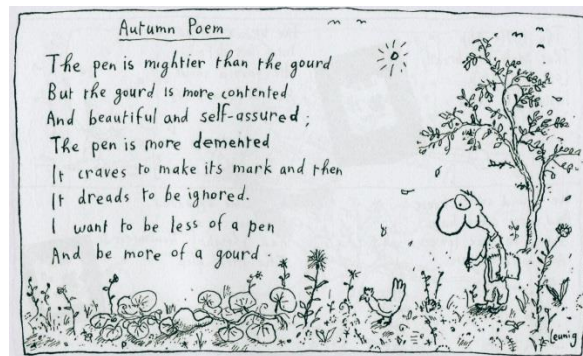 Autumn Poem
The pen is mightier than the gourd
But the gourd is more contented
And beautiful and self-assured;
The pen is more demented
It craves to make its mark and then
It dreads to be ignored.
I want to be less of a pen
And be more of a gourd.
Leunig